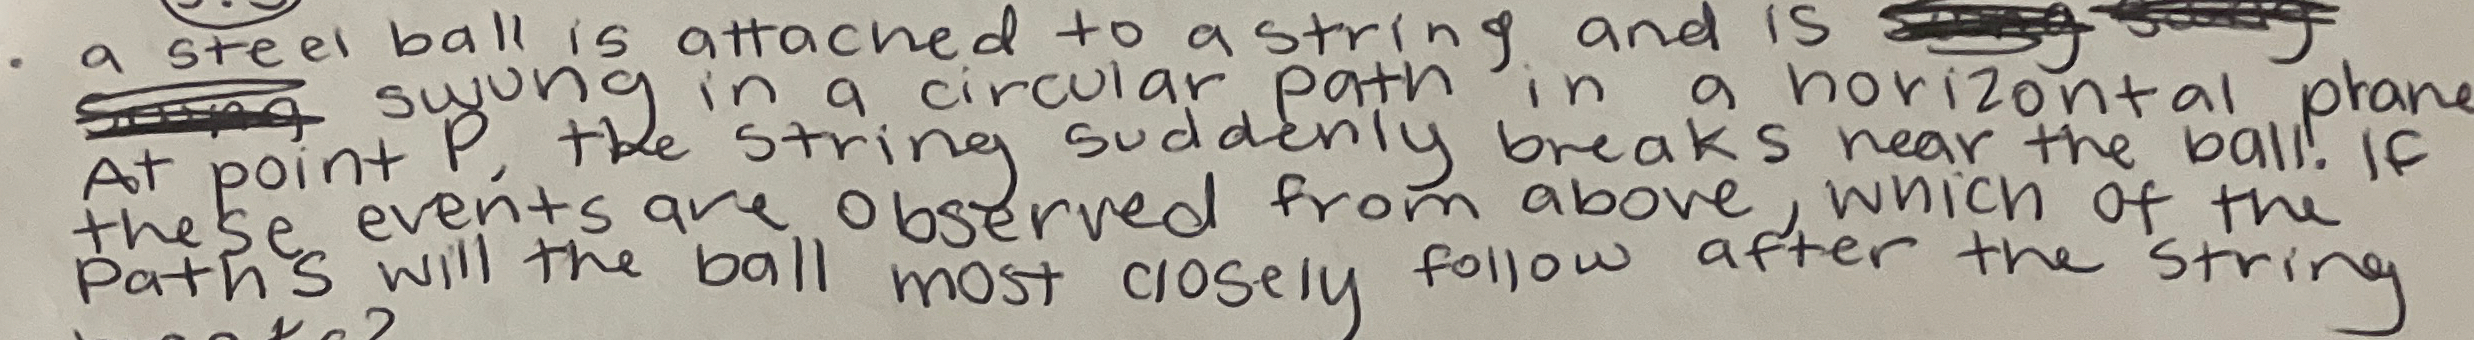 . a steel ball is attached to a string and is
swung in a circular path in a horizontal plane
At point P, the string suddenly breaks near the ball. If
these events are observed from above, which of the
paths will the ball most closely follow after the string